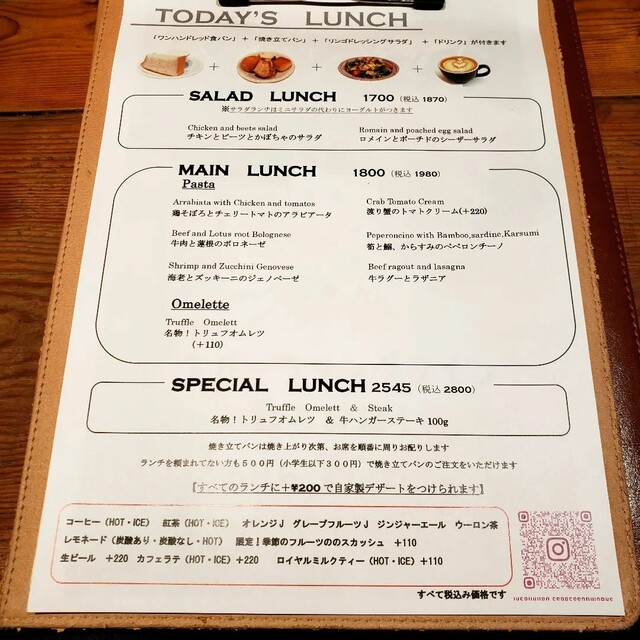 TODAY'S LUNCH
「ワンハンドレッド食パン」 + 「焼き立てパン」 + 「リンゴドレッシングサラダ」 + 「ドリンク」が付きます
+ + +
SALAD LUNCH 1700 (税込 1870)
※サラダランチはミニサラダの代わりにヨーグルトがつきます
Chicken and beets salad
チキンとビーツとかぼちゃのサラダ
Romain and poached egg salad
ロメインとポーチドのシーザーサラダ
MAIN LUNCH 1800 (税込 1980)
Pasta
Arrabiata with Chicken and tomatos
鶏そぼろとチェリートマトのアラビアータ
Crab Tomato Cream
渡り蟹のトマトクリーム(+220)
Beef and Lotus root Bolognese
牛肉と蓮根のボロネーゼ
Peperoncino with Bamboo,sardine,Karsumi
筍と鰯、からすみのペペロンチーノ
Shrimp and Zucchini Genovese
海老とズッキーニのジェノベーゼ
Beef ragout and lasagna
牛ラグーとラザニア
Omelette
Truffle Omelett
名物！トリュフオムレツ
(+110)
SPECIAL LUNCH 2545 (税込 2800)
Truffle Omelett & Steak
名物！トリュフオムレツ & 牛ハンガーステーキ 100g
焼き立てパンは焼き上がり次第、お席を順番に周りお配りします
ランチを頼まれてない方も５００円（小学生以下３００円）で焼き立てパンのご注文をいただけます
【すべてのランチに＋¥200 で自家製デザートをつけられます】
コーヒー（HOT・ICE） 紅茶（HOT・ICE） オレンジJ グレープフルーツJ ジンジャーエール ウーロン茶
レモネード（炭酸あり・炭酸なし・HOT） 限定！季節のフルーツののスカッシュ +110
生ビール +220 カフェラテ（HOT・ICE）+220 ロイヤルミルクティー（HOT・ICE）+110
すべて税込み価格です